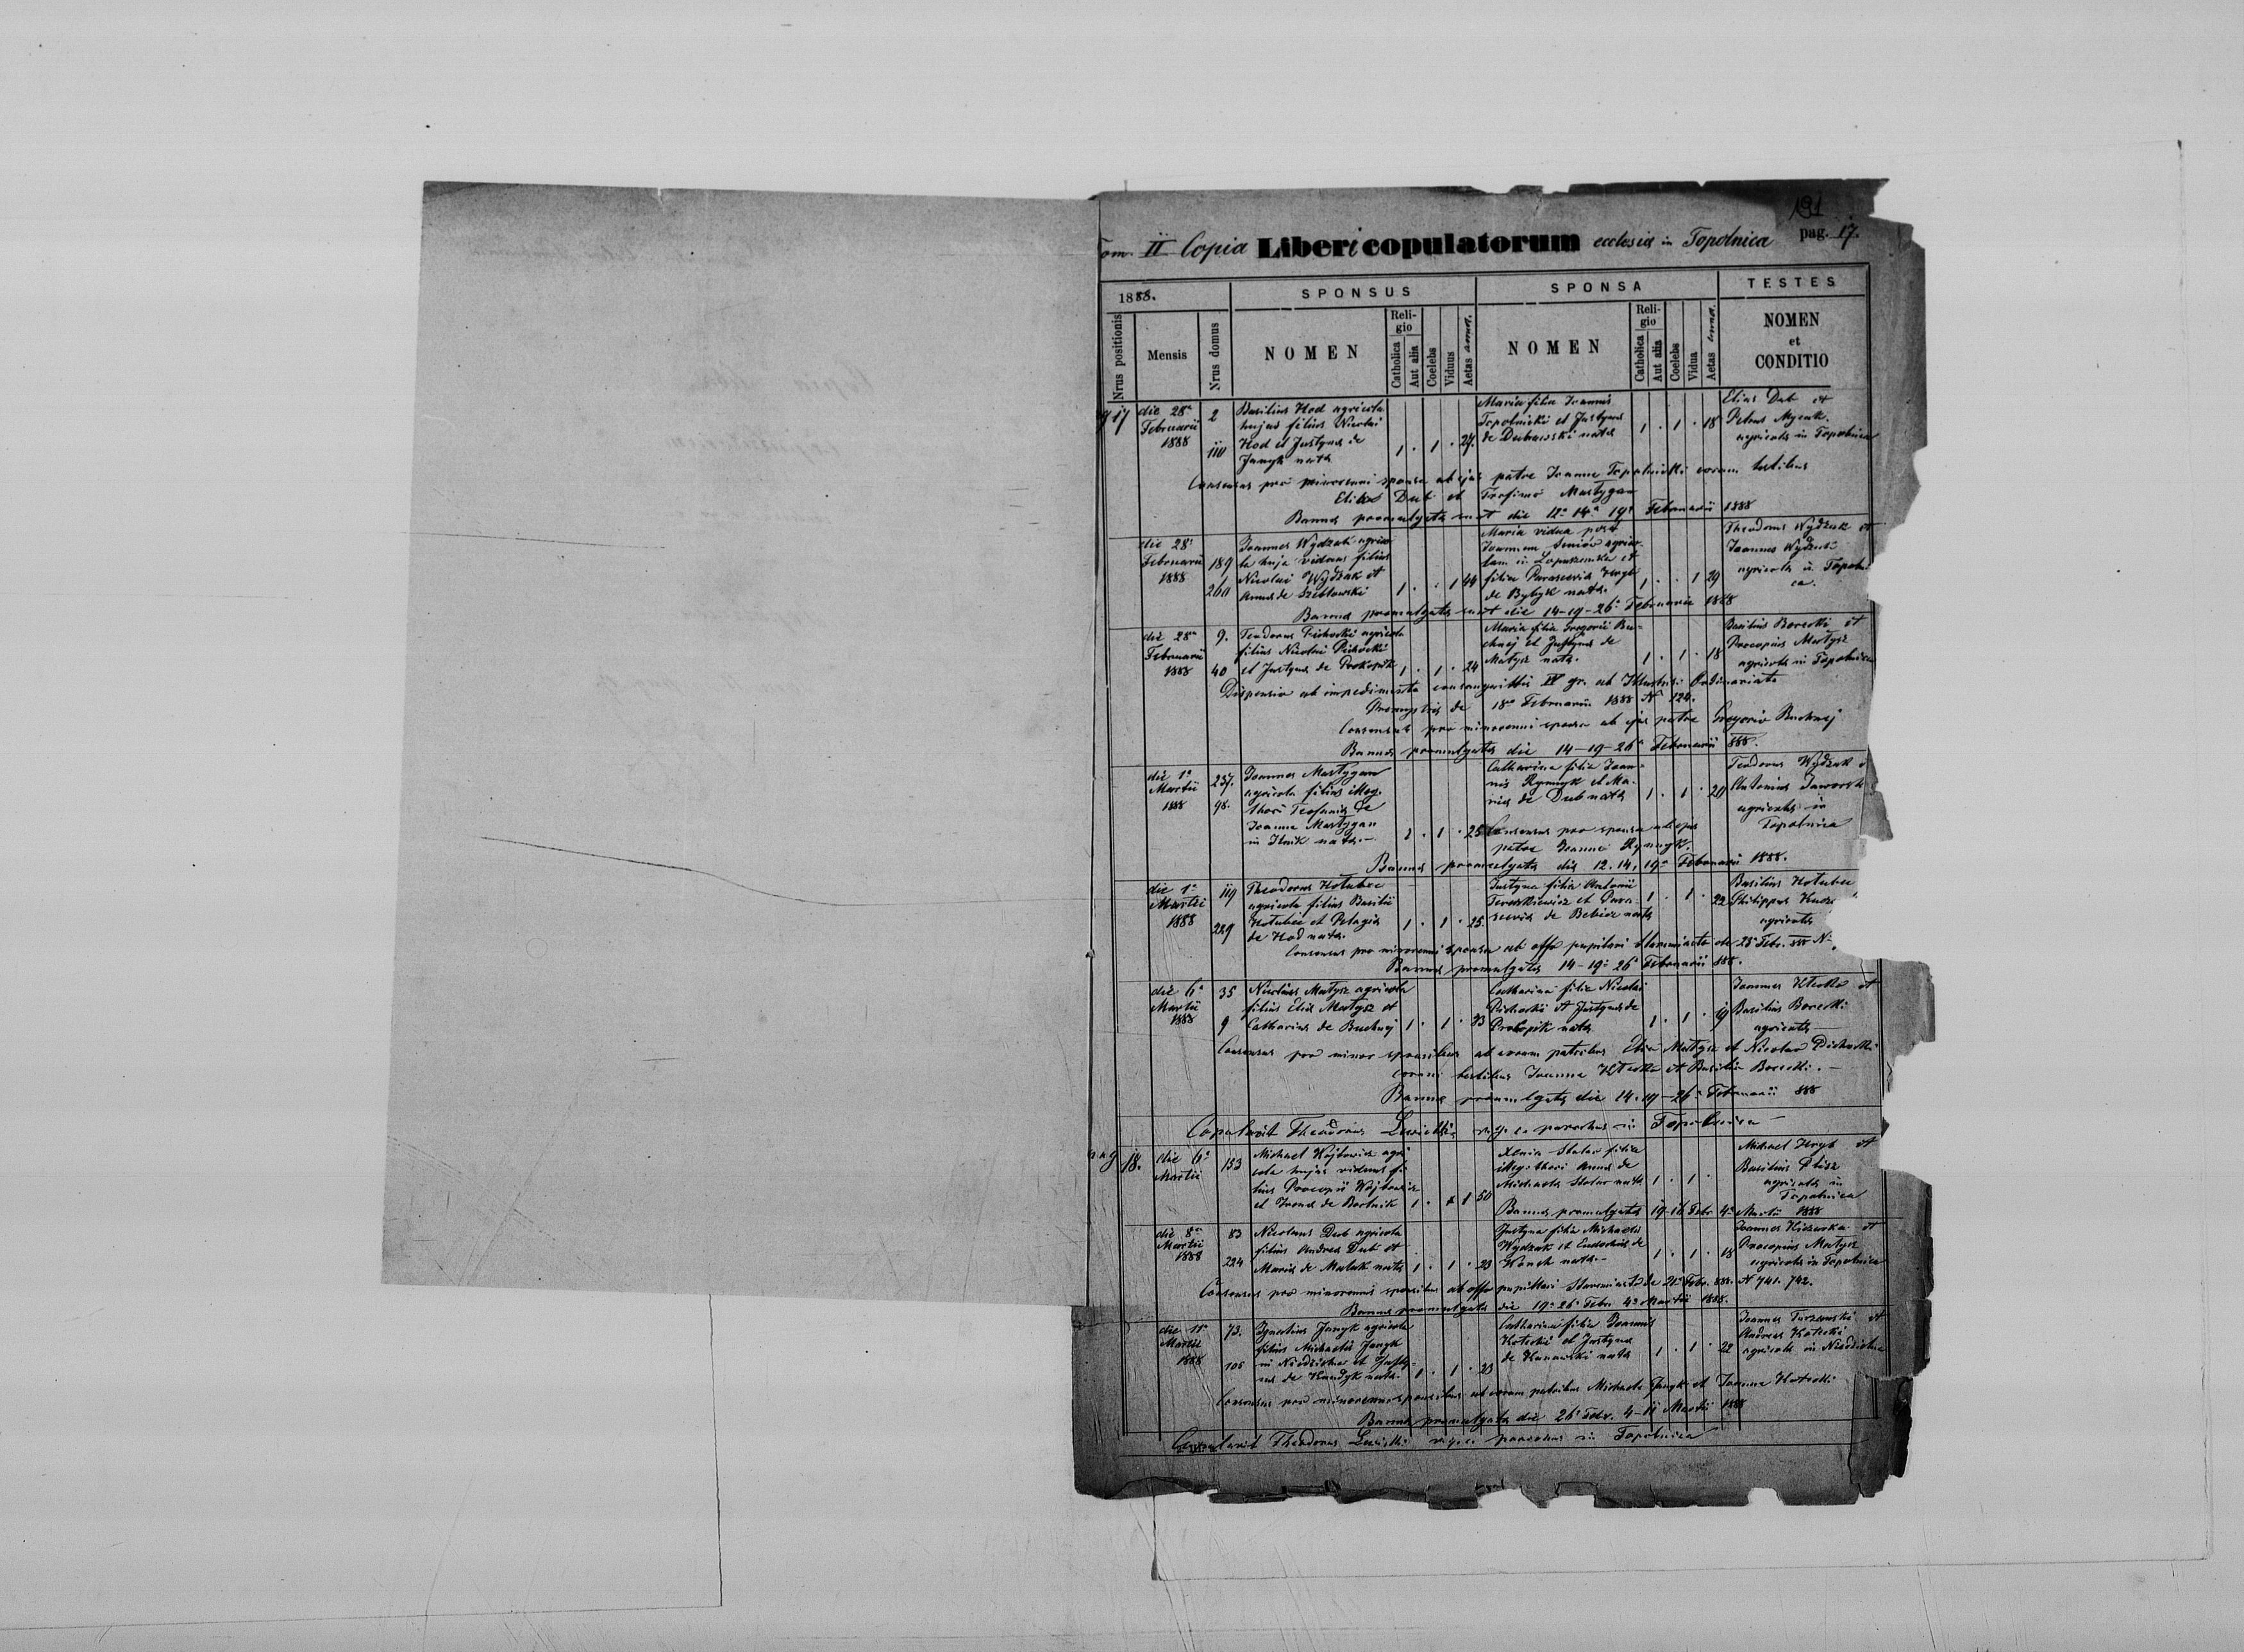 191
Tom. II Copia Liberi copulatorum ecclesia in Topolnica pag. 17.
1888. SPONSUS SPONSA TESTES
Nrus positionis Mensis Nrus domus NOMEN Religio Catholica Aut alia Coelebs Viduus Aetas NOMEN Religio Catholica Aut alia Coelebs Vidua Aetas NOMEN et CONDITIO
pag 17
die 28a Februarii 1888
2
110
Basilius Hod agricola
hujas filius Nicolai
Hod et Justyna de
Janyk nata
1 . 1 . 27.
Maria filia Joannis
Topolnicki et Justyna
de Dubawski nata
1 . 1 . 18
Elias Dub et
Petrus
agricola in Topolnica
Consensus pro minorenni sponsa ab ejus patre Joanne Topolnicki coram testibus
Elias Dub et Trofimo Martygan
Banna promulgata sunt die 12a 14a 19a Februarii 1888
die 28a
Februarii
1888
189
260
Joannes Wydzak agrico
la huja viduus filius
Nicolai Wydzak et
Anna de Szeblowski
1 . . 1 44
Maria vidua post
Joannem Senior agrico-
lam in Lopuszanka et
filia Parascevia Hryb
de Bybyk nata.
1 . . 1 29
Theodorus Wydzak et
Joannes Wydzak
agricola in Topolni
ca.
Banna promulgata sunt die 14-19-26a Februarii 1888
die 28a
Februarii
1888
9.
40
Teodorus Pichocki agricola
filius Nicolai Pichocki
et Justyna de Prokopik
1 . 1 . 24
Maria filia Gregorii Bu-
chnij et Justyna de
Matysz nata.
1 . 1 . 18
Basilius Borecki et
Procopius Matysz
agricola in Topolnica
Dispensio ab impedimento consanguittis IV gr. ab Illustrssi Ordinariato
de 18a Februarii 1888 No 124.
Consensus pro minorenni sponsa ab ejus patre Gregorio Buchnij
Banna promulgata die 14-19-26a Februarii 888.
die 1a
Martii
1888
237.
98.
Joannes Martygan
agricola filius illeg.
thori Teofania de
Joanne Martygan
in Ilnik nata.-
1 . 1 . 25
Catharina filia Joan-
nis Rymyk et Ma-
ria de Dub nata
1 . 1 . 20
Consensus pro sponsa ab ejus
patre Joanne Rymyk.
Teodorus Wydzak
Antonius Jaworsk
agricola in
Topolnica
Banna promulgata die 12. 14, 19a Februarii 1888.
die 1a
Martii
1888
119
229
Theodorus Holubec
agricola filius Basilii
Holubec et Pelagia
de Hod nata.
1 . 1 . 25.
Justyna filia Antonii
Terebkiewicz et Para-
scevia de Bebicz nata
1 . 1 . 22
Basilius Holubec
Philippus
agricola
Consensus pro minorenni sponsa ab offo pupilari Staromiasto de 23a Febr. 888 No
Banna promulgata 14-19a 26a Februarii 888.
die 6a
Martii
1888
35
9
Nicolaus Matysz agricola
filius Elia Matysz et
Catharina de Buchnij
1 . 1 . 23
Catharina filia Nicolai
Pichocki et Justyna de
Prokopik nata
1 . 1 . 19
Joannes et
Basilius Borecki
agricola
Consensus pro minor sponsibus ab eorum patribus Elia Matysz et Nicolao Pichocki
coram testibus Joanne et Basilio Borecki. -
Banna promulgata die 14.19-26a Februarii 888
Copulavit Theodorus Lewicki parochus in Topolnica -
pag 18.
die 6a
Martii
153
Michael Wojtowicz agri
cola hujas viduus fi
lius Procopii Wojtowicz
et Irena de Bortnik
1 . 1 50
Xenia Stolar filia
illeg. thori Anna de
Michaele Stolar nata
1 . 1 .
Michael Hryb et
Basilius Ptisz
agricola in
Topolnica
Banna promulgata 19-26 Febr 4a Martii 1888
die 8a
Martii
1888
83
224
Nicolaus Dub agricola
filius Andrea Dub et
Maria de Malek nata
1 . 1 . 23
Justyna filia Michaelis
Wydzak et Eudochia de
nata.-
1 . 1 . 18
Joannes et
Procopius Matysz
agricola in Topolnica
Consensus pro minorennis sponsibus ab offo pupillari Staromiasto de 21a Febr. 888. No 741. 742.
Banna promulgata die 19a 26a Febr. 4a Martii 1888.
die 11a
Martii
1888
73.
105
Ignatius Janyk agricola
filius Michaelis Janyk
in Niedzielna et Justy-
na de nata.
1 . 1 . 23
Catharina filia Joannis
Kotecki et Justyna
de nata
1 . 1 . 22
Joannes Turzanski et
Andreas Kotecki
agricola in Niedzielna
Consensus pro minorenni sponsibus ab eorum patribus Michaele Janyk et Joanne Kotecki
Banna promulgata die 26a Febr. 4-11 Martii 1888
Copulavit Theodorus Lewicki parochus in Topolnica